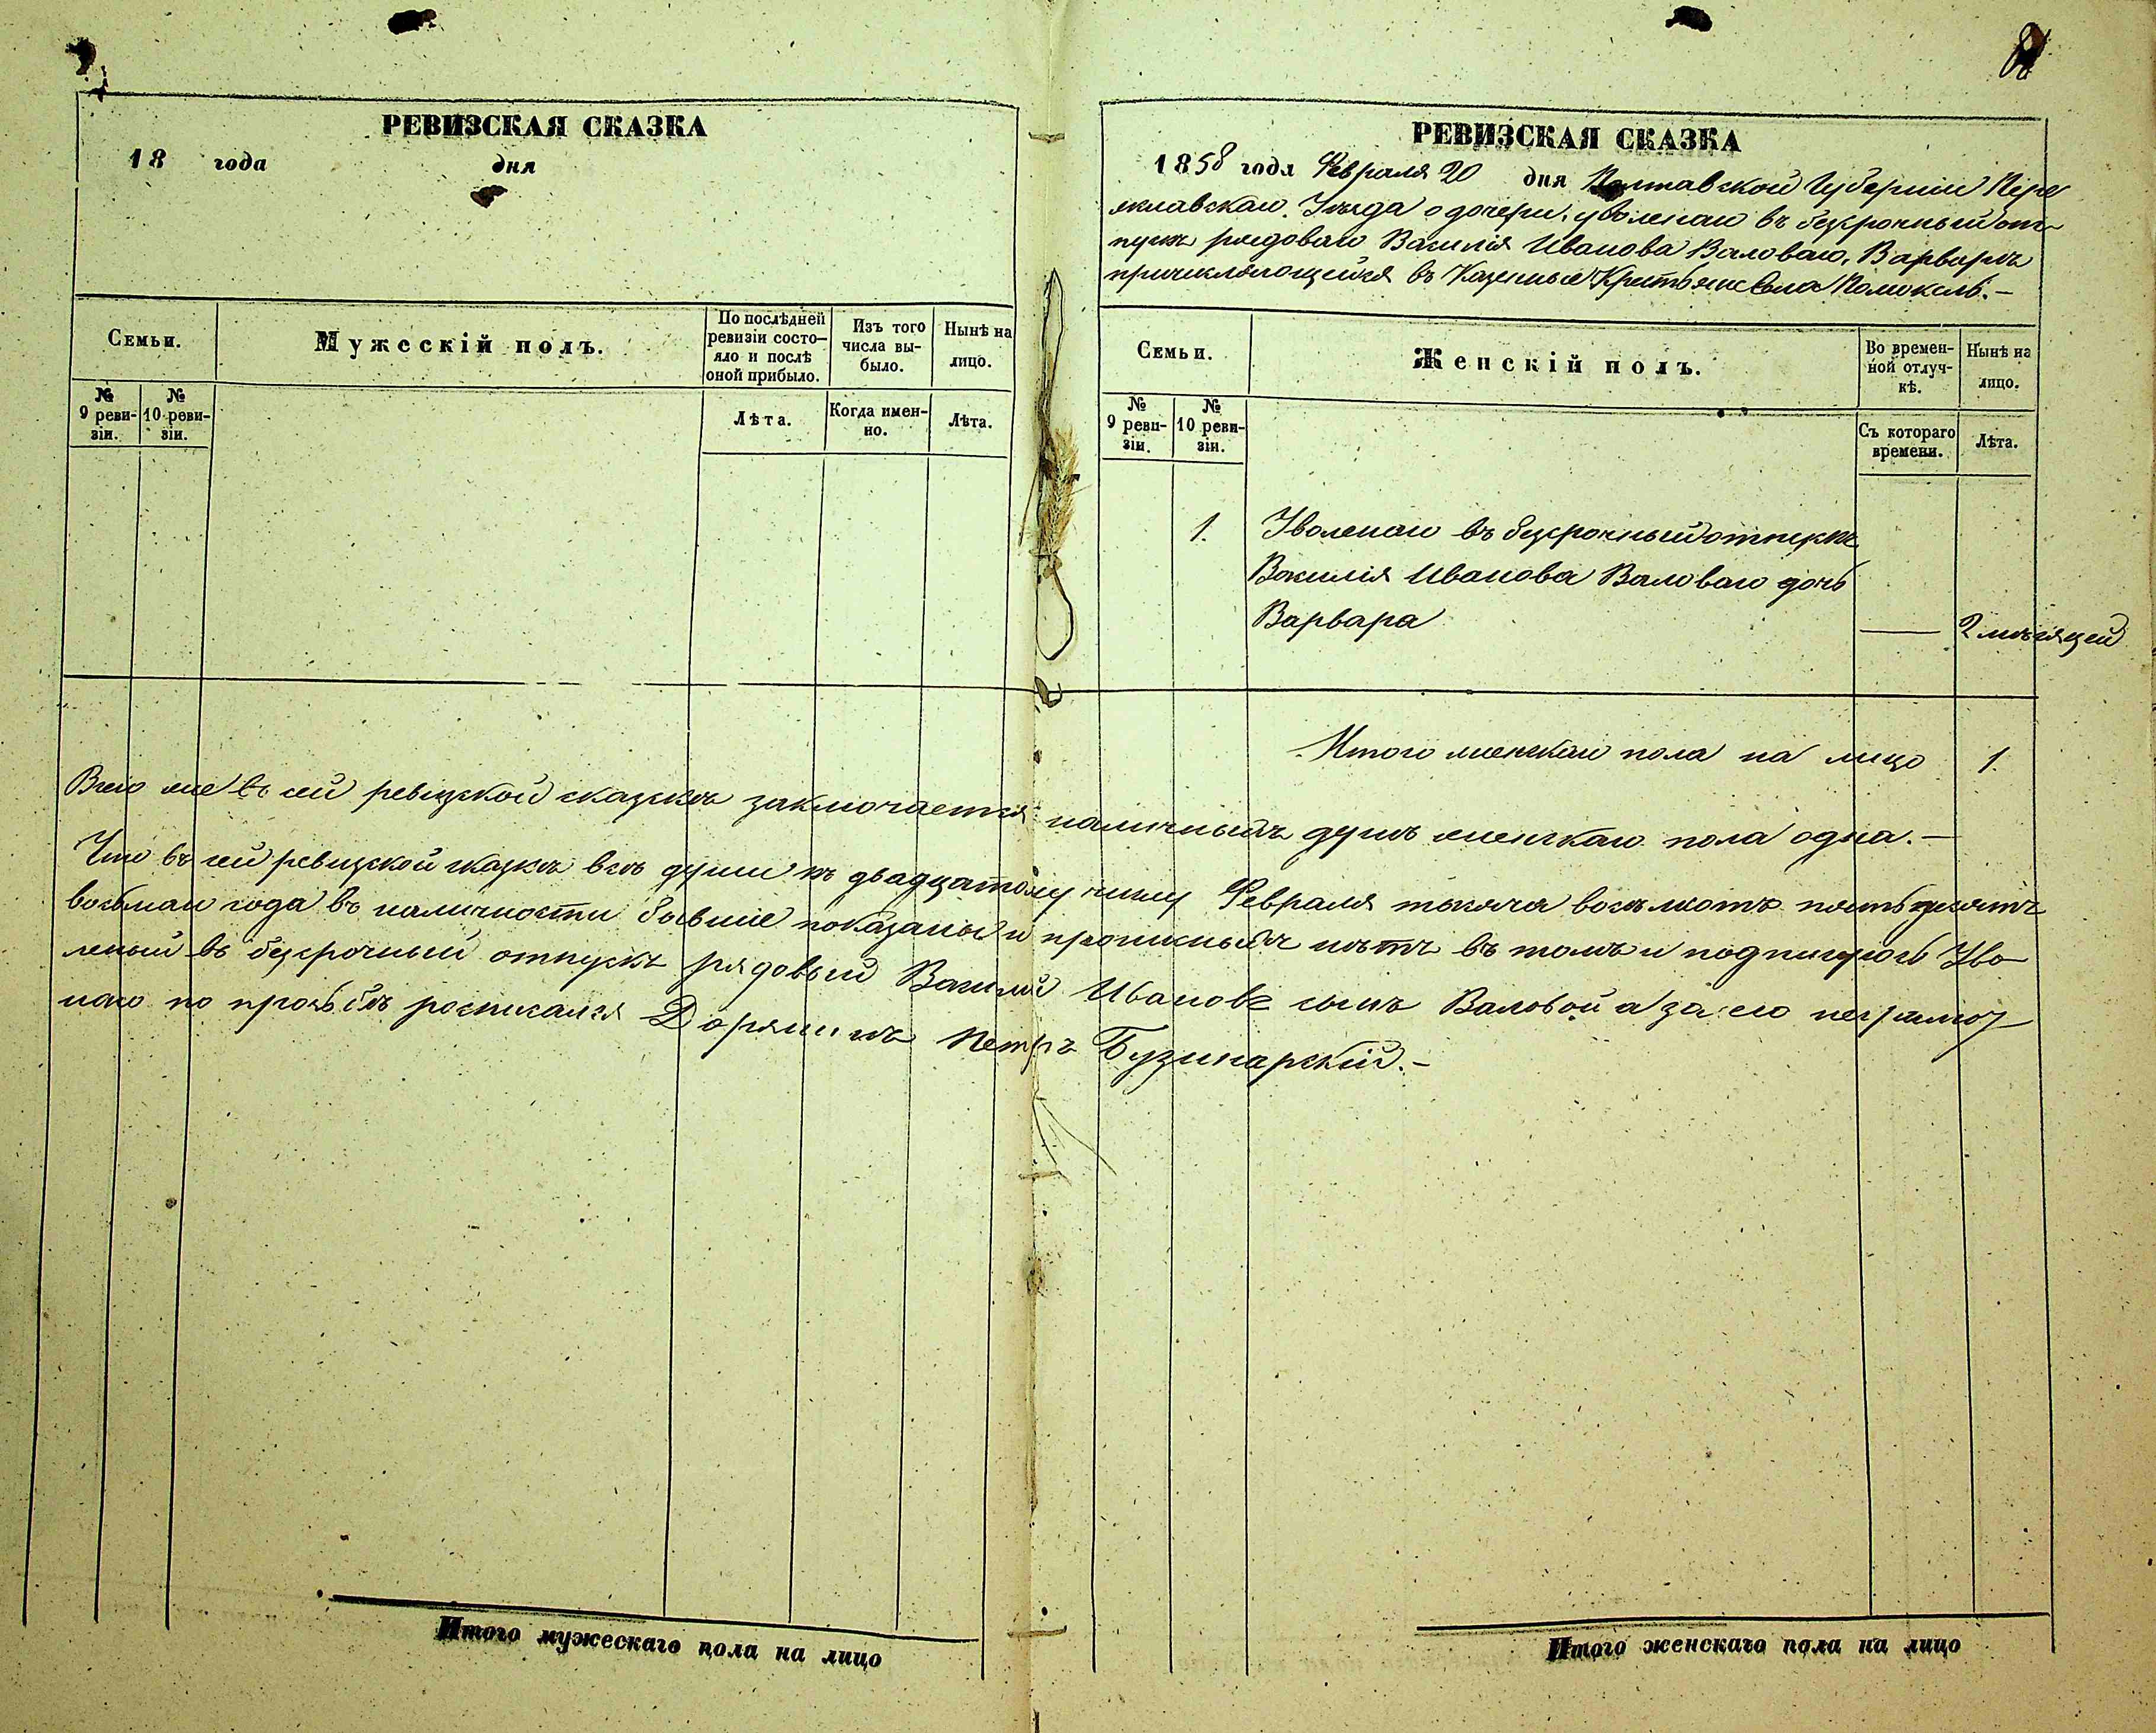 РЕВИЗСКАЯ СКАЗКА
18 года дня
Семьи.
Мужескій полъ.
По послѣдней ревизіи состояло и послѣ оной прибыло.
Изъ того числа выбыло.
Нынѣ на лицо.
№ 9 ревизіи.
№ 10 ревизіи.
Лѣта.
Когда именно.
Лѣта.
РЕВИЗСКАЯ СКАЗКА
1858 года Февраля 20 дня Полтавской Губерніи Пере
яславскаго Уѣзда о дочери, уволенаго въ безсрочный от-
пускъ рядоваго Василія Иванова Валоваго, Варваръ
причисляющейся въ Казенные Крестьяне Села Помоклъ.-
Семьи.
Женскій полъ.
Во временной отлучкѣ.
Нынѣ на лицо.
№ 9 ревизіи.
№ 10 ревизіи.
Съ котораго времени.
Лѣта.
1. Уволенаго въ безсрочный отпускъ
Василія Иванова Валоваго дочь
Варвара — 2 мѣсяцей
Итого женскаго пола на лицо 1.
Всего же въ сей ревизской сказкѣ заключается наличныхъ душъ женскаго пола одна.-
Что въ сей ревизской сказкѣ всѣ души къ двадцатому числу Февраля тысяча восѣмсотъ пятьдесятъ
восьмаго года въ наличности бывшіе показаны и прописныхъ нѣтъ въ томъ и подписуюсь Уво
леный въ безсрочный отпускъ рядовый Василій Ивановъ сынъ Валовой а за его неграмот
наго по прозьбѣ росписался Дорянинъ Петръ Бузинарскій.-
Итого мужескаго пола на лицо
Итого женскаго пола на лицо